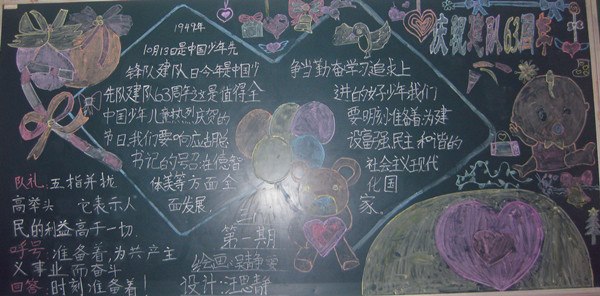 庆祝建队63周年
1949年
10月13日是中国少年先
锋队建队日今年是中国少
先队建队63周年这是值得全
中国少年儿童热烈庆贺的
节日.我们要响应胡总
书记的号召在德智
体美等方面全
面发展.
争当勤奋学习追求上
进的好少年我们
要明确准备着为建
设富强民主和谐的
社会主义现代
化国
家。
队礼:五指并拢
高举头 它表示人
民的利益高于一切.
呼号:准备着,为共产主
义事业而奋斗
回答:时刻准备着!
第一期
绘画:吴静雯
设计:汪思静